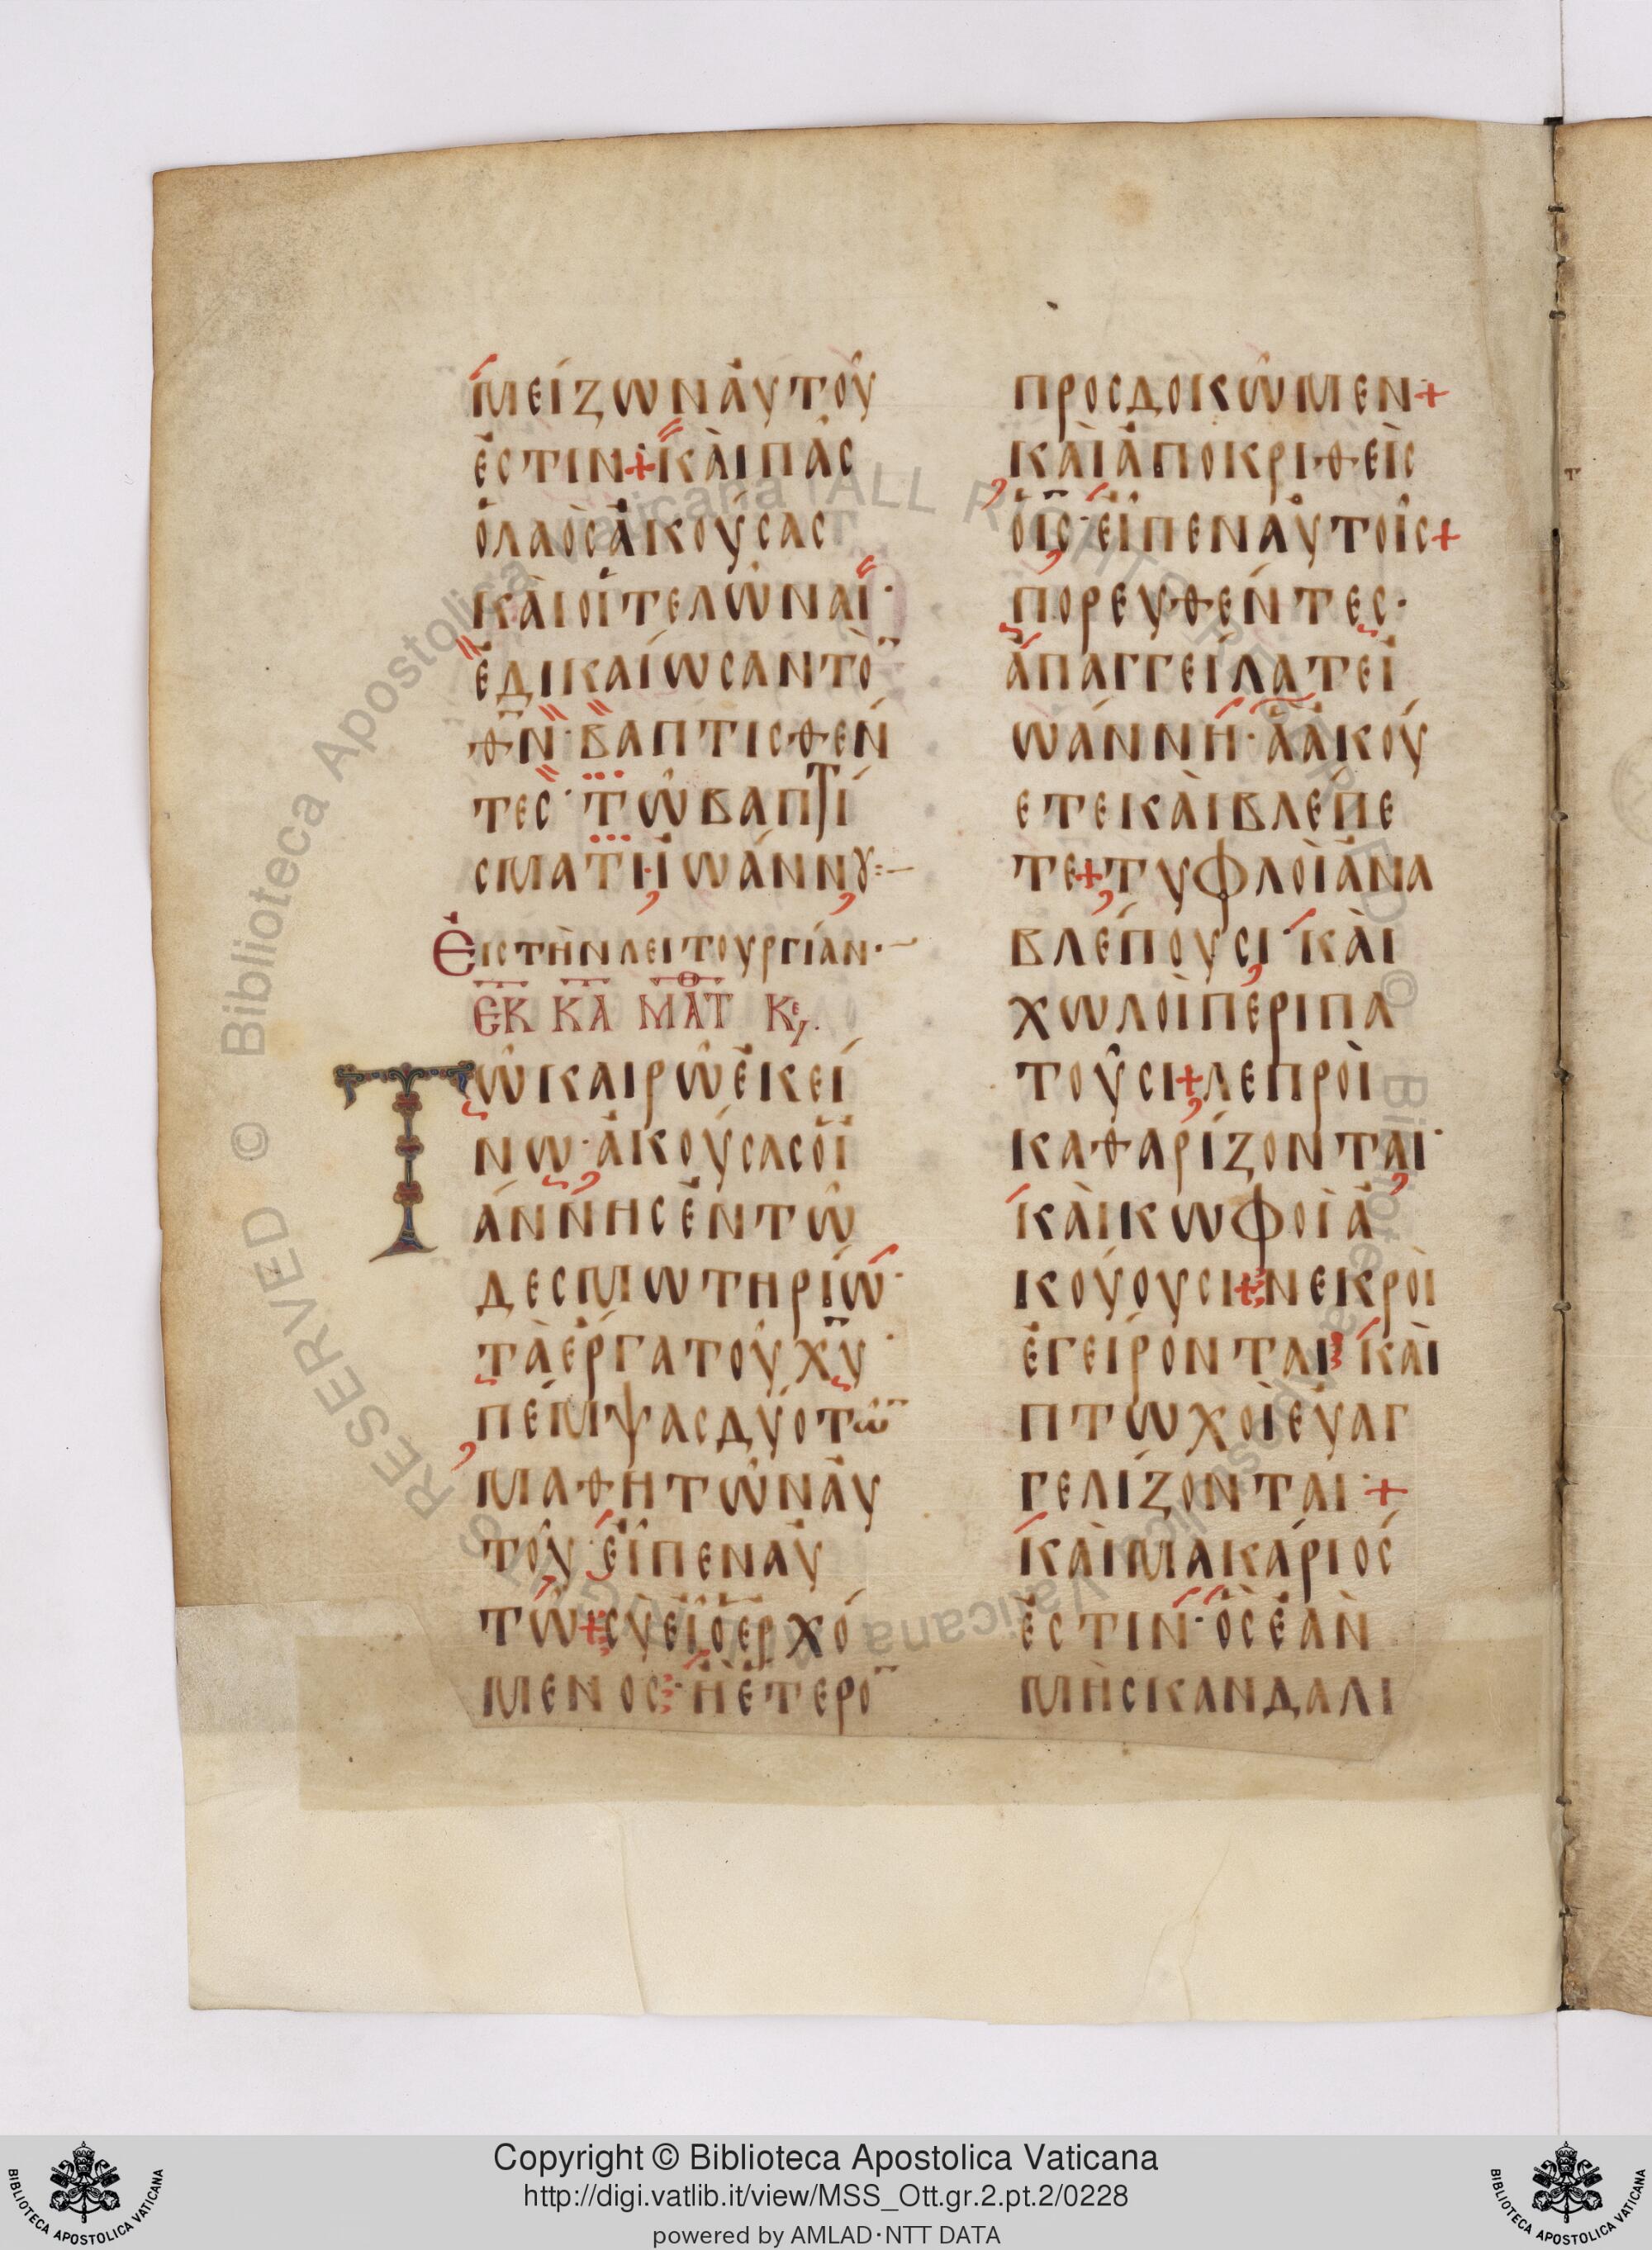 ΜΕΊΖΩΝΑ᾽ΥΤΟΥ͂
ἘΣΤΙΝ+ΚΑῚΠΑ͂Σ
ὉΛΑῸΣἈΚΟΎΣΑΣ
ΚΑῚΟἹΤΕΛΩ͂ΝΑΙ·
ἘΔΙΚΑΊΩΣΑΝΤῸ
Θ̅Ν̅·ΒΑΠΤΙΣΘΈΝ
ΤΕΣ·ΤΩ͂ΒΑΠΤΊ
ΣΜΑΤΗΪΩΆΝΝΟΥ:–
ἘΙΣΤῊΝΛΕΙΤΟΥΡΓΊΑΝ·~
ΕΚ Κ̅Α̅ ΜΑΤΘ ΚΕ.
ΤΩ͂ΚΑΙΡΩ͂ἘΚΕΊ
ΝΩ·ἈΚΟΎΣΑΣὉΪ
ΩΆΝΝΗΣἘΝΤΩ͂
ΔΕΣΜΩΤΗΡΊΩ·
ΤᾺἜΡΓΑΤΟΥ͂Χ̅Υ̅·
ΠΈΜΨΑΣΔΎΟΤΩ͂
ΜΑΘΗΤΩ͂ΝΑ᾽Υ
ΤΟΥ͂·ΕἾΠΕΝΑ᾽Υ
ΤΩ͂+ΣΥΕἾὉΕΡΧΌ
ΜΕΝΟΣ·ἪἝΤΕΡΟ
ΠΡΟΣΔΟΚΩ͂ΜΕΝ+
ΚΑῚἈΠΟΚΡΙΘΕῚΣ
ὉΙ̅Σ̅·ΕἾΠΕΝΑ᾽ΥΤΟΙ͂Σ+
ΠΟΡΕΥΘΈΝΤΕΣ·
ἈΠΑΓΓΕΊΛΑΤΕΪ
ΩΆΝΝΗ·ἋἈΚΟΎ
ΕΤΕΚΑῚΒΛΈΠΕ
ΤΕ+ΤΥΦΛΟῚἈΝΑ
ΒΛΈΠΟΥΣΙ·ΚΑῚ
ΧΩΛΟῚΠΕΡΙΠΑ
ΤΟΥ͂ΣΙ+ΛΕΠΡΟῚ
ΚΑΘΑΡΊΖΟΝΤΑΙ·
ΚΑῚΚΩΦΟῚἈ
ΚΟΎΟΥΣΙ+ΝΕΚΡΟῚ
ἘΓΕΊΡΟΝΤΑΙ·ΚΑῚ
ΠΤΩΧΟῚΕ᾽ΥΑΓ
ΓΕΛΊΖΟΝΤΑΙ·+
ΚΑῚΜΑΚΆΡΙΟΣ
ἘΣΤΙΝ·ὍΣἘᾺΝ
ΜῊΣΚΑΝΔΑΛΙ
Copyright © Biblioteca Apostolica Vaticana
http://digi.vatlib.it/view/MSS_Ott.gr.2.pt.2/0228
powered by AMLAD·NTT DATA
BIBLIOTECA APOSTOLICA VATICANA
BIBLIOTECA APOSTOLICA VATICANA